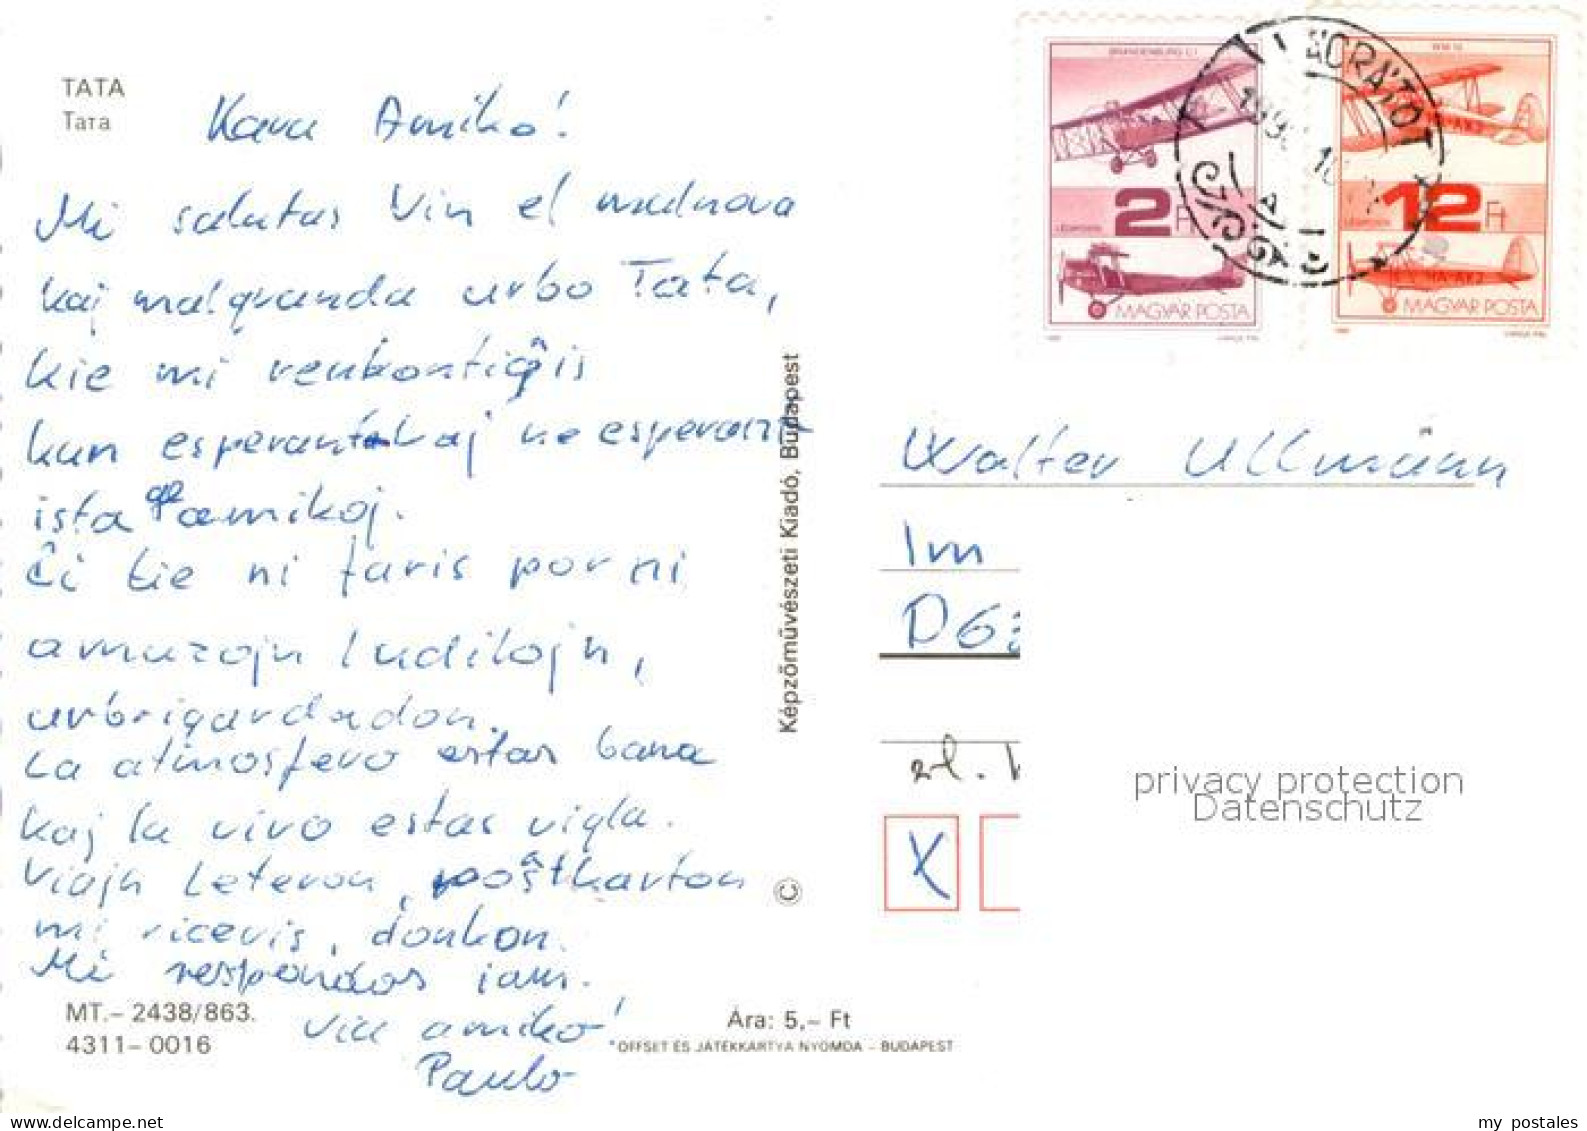 TATA
Tata
Kara Amiko!
Mi salutas Vin el malnova
kaj malgranda urbo Tata,
kie mi renkontiĝis
kun esperantistaj ne esperant
ista amikoj.
Ĉi tie ni faris por ni
amuzojn ludilojn,
urbrigardadon.
La atmosfero estas bona
kaj la vivo estas vigla.
Viajn Leteron, poŝtkarton
mi ricevis, dankon.
Mi respondos iam.
Via amiko!
Paulo
MT.– 2438/863.
4311– 0016
Képzőművészeti Kiadó, Budapest
©
Ára: 5,– Ft
OFFSET ÉS JÁTÉKKÁRTYA NYOMDA – BUDAPEST
BRANDENBURG C I
2 Ft
LÉGIPOSTA
MAGYAR POSTA
WM 10
12 Ft
LÉGIPOSTA
HA-AKJ
MAGYAR POSTA
VÁCRÁTÓT
199
10
A
Walter Ullmann
Im
D 63
privacy protection
Datenschutz
X
my postales